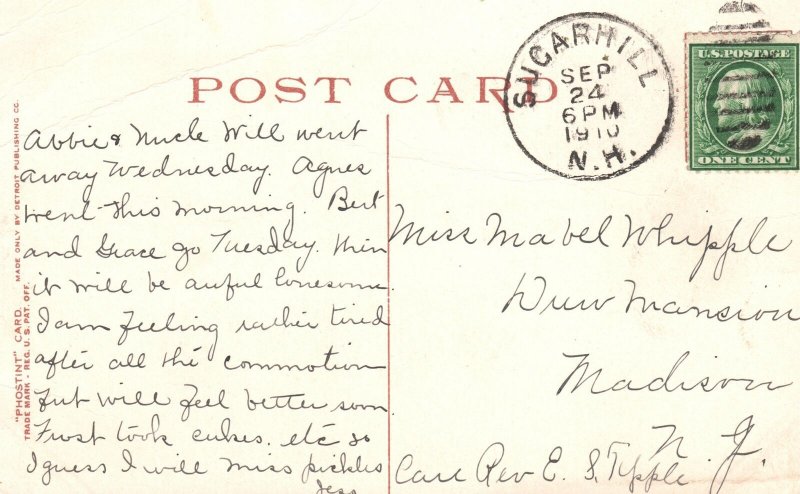 POST CARD
SUGARHILL
SEP
24
6 PM
1910
N.H.
U.S. POSTAGE
ONE CENT
"PHOSTINT" CARD. MADE ONLY BY DETROIT PUBLISHING CO.
TRADE MARK - REG. U.S. PAT. OFF.
Abbie & Uncle Will went
away Wednesday. Agnes
went this morning. Bert
and Grace go Tuesday. then
it will be awful lonesome.
I am feeling rather tired
after all the commotion
but will feel better soon.
Frost took cukes. etc so
I guess I will miss pickles
Jess
Miss Mabel Whipple
Drew Mansion
Madison
N. J.
Care Rev E. S. Tipple